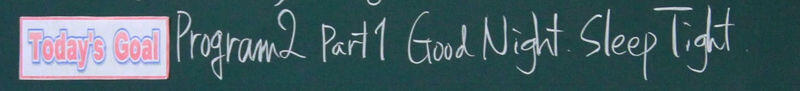 Today's Goal Program2 Part1 Good Night. Sleep Tight.